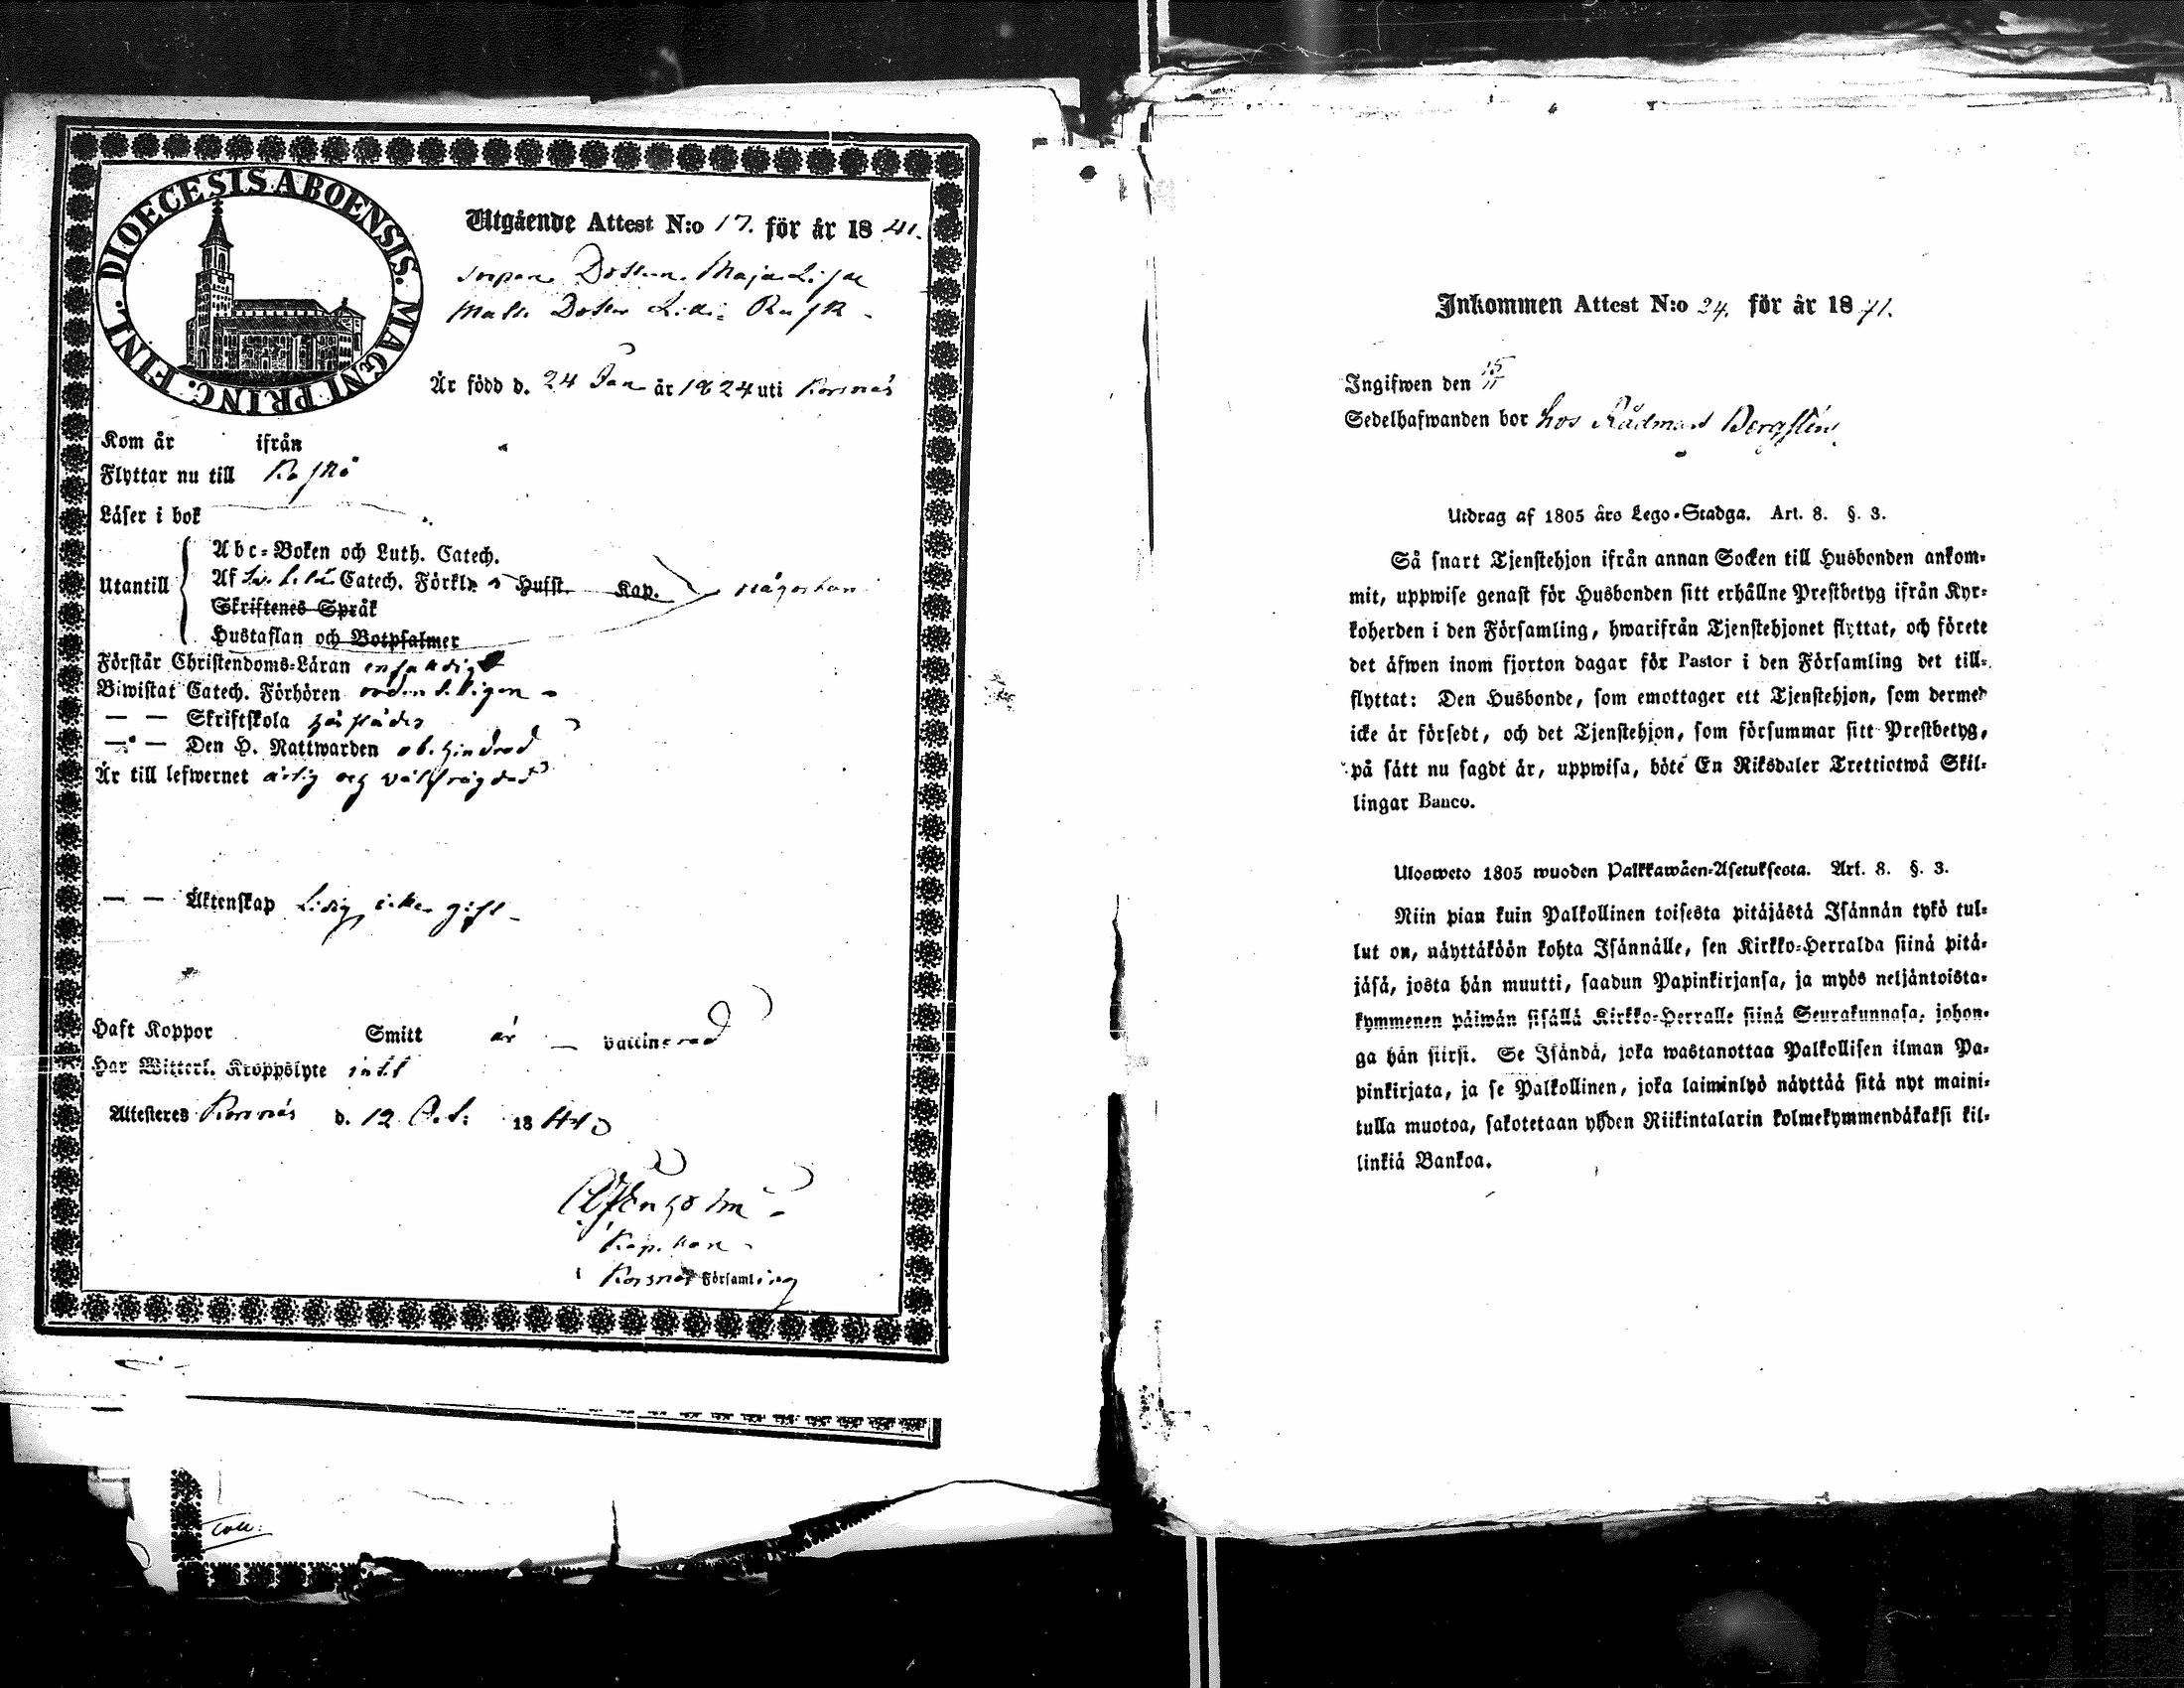 DIOECESIS ABOENSIS. MAGNI PRINC. FINL.
Utgående Attest N:o 17. för år 18 41.
Dottern Maja Lisa
Matts Dotter
Är född d. 24 Jan år 1824 uti Korsnäs
Kom år ifrån
Flyttar nu till Kaskö
Läser i bok
Utantill
Abc-Boken och Luth. Catech.
Af Catech. Förkl. Hufst. Kap. någorlun
Skriftenes Språk
Hustaflan och Botpsalmer
Förstår Christendoms-Läran enfaldigt
Biwistat Catech. Förhören ordentligen
— — Skriftskola härstädes
— — Den H. Nattwarden obehindrad
Är till lefwernet ärlig och välfrägdad
— — Äktenskap Ledig, icke gift
Haft Koppor Smitt är vaccinerad
Har Witterl. Kroppslyte intet
Attesteres Korsnäs d. 12 Oct: 18
Kaplan
i Korsnäs Församling
Inkommen Attest N:o 24. för år 18 41.
Ingifwen den 15/11
Sedelhafwanden bor hos Rådman Bergstén
Utdrag af 1805 års Lego-Stadga. Art. 8. §. 3.
Så snart Tjenstehjon ifrån annan Socken till Husbonden ankom-
mit, uppwise genast för Husbonden sitt erhållne Prestbetyg ifrån Kyr-
koherden i den Församling, hwarifrån Tjenstehjonet flyttat, och förete
det äfwen inom fjorton dagar för Pastor i den Församling det till-
flyttat: Den Husbonde, som emottager ett Tjenstehjon, som dermed
icke är försedt, och det Tjenstehjon, som försummar sitt Prestbetyg,
på sätt nu sagdt är, uppwisa, böte En Riksdaler Trettiotwå Skil-
lingar Banco.
Ulosweto 1805 wuoden Palkkawäen-Asetuksesta. Art. 8. §. 3.
Niin pian kuin Palkollinen toisesta pitäjästä Isännän tykö tul-
lut on, näyttäköön kohta Isännälle, sen Kirkko-Herralda siinä pitä-
jäsä, josta hän muutti, saadun Papinkirjansa, ja myös neljäntoista-
kymmenen päiwän sisällä Kirkko-Herralle siinä Seurakunnasa, johon-
ga hän siirsi. Se Isändä, joka wastanottaa Palkollisen ilman Pa-
pinkirjata, ja se Palkollinen, joka laiminlyö näyttää sitä nyt maini-
tulla muotoa, sakotetaan yhden Riikintalarin kolmekymmendäkaksi kil-
linkiä Bankoa.